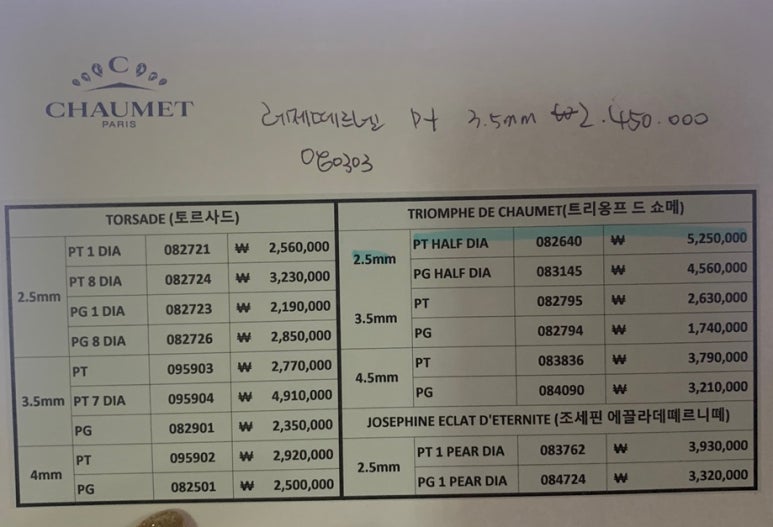 C
CHAUMET
PARIS
레제떼르넬 Pt 3.5mm ₩2.450.000
080303
TORSADE (토르사드)
2.5mm
PT 1 DIA 082721 ₩ 2,560,000
PT 8 DIA 082724 ₩ 3,230,000
PG 1 DIA 082723 ₩ 2,190,000
PG 8 DIA 082726 ₩ 2,850,000
3.5mm
PT 095903 ₩ 2,770,000
PT 7 DIA 095904 ₩ 4,910,000
PG 082901 ₩ 2,350,000
4mm
PT 095902 ₩ 2,920,000
PG 082501 ₩ 2,500,000
TRIOMPHE DE CHAUMET(트리옹프 드 쇼메)
2.5mm
PT HALF DIA 082640 ₩ 5,250,000
PG HALF DIA 083145 ₩ 4,560,000
3.5mm
PT 082795 ₩ 2,630,000
PG 082794 ₩ 1,740,000
4.5mm
PT 083836 ₩ 3,790,000
PG 084090 ₩ 3,210,000
JOSEPHINE ECLAT D'ETERNITE (조세핀 에끌라데떼르니떼)
2.5mm
PT 1 PEAR DIA 083762 ₩ 3,930,000
PG 1 PEAR DIA 084724 ₩ 3,320,000